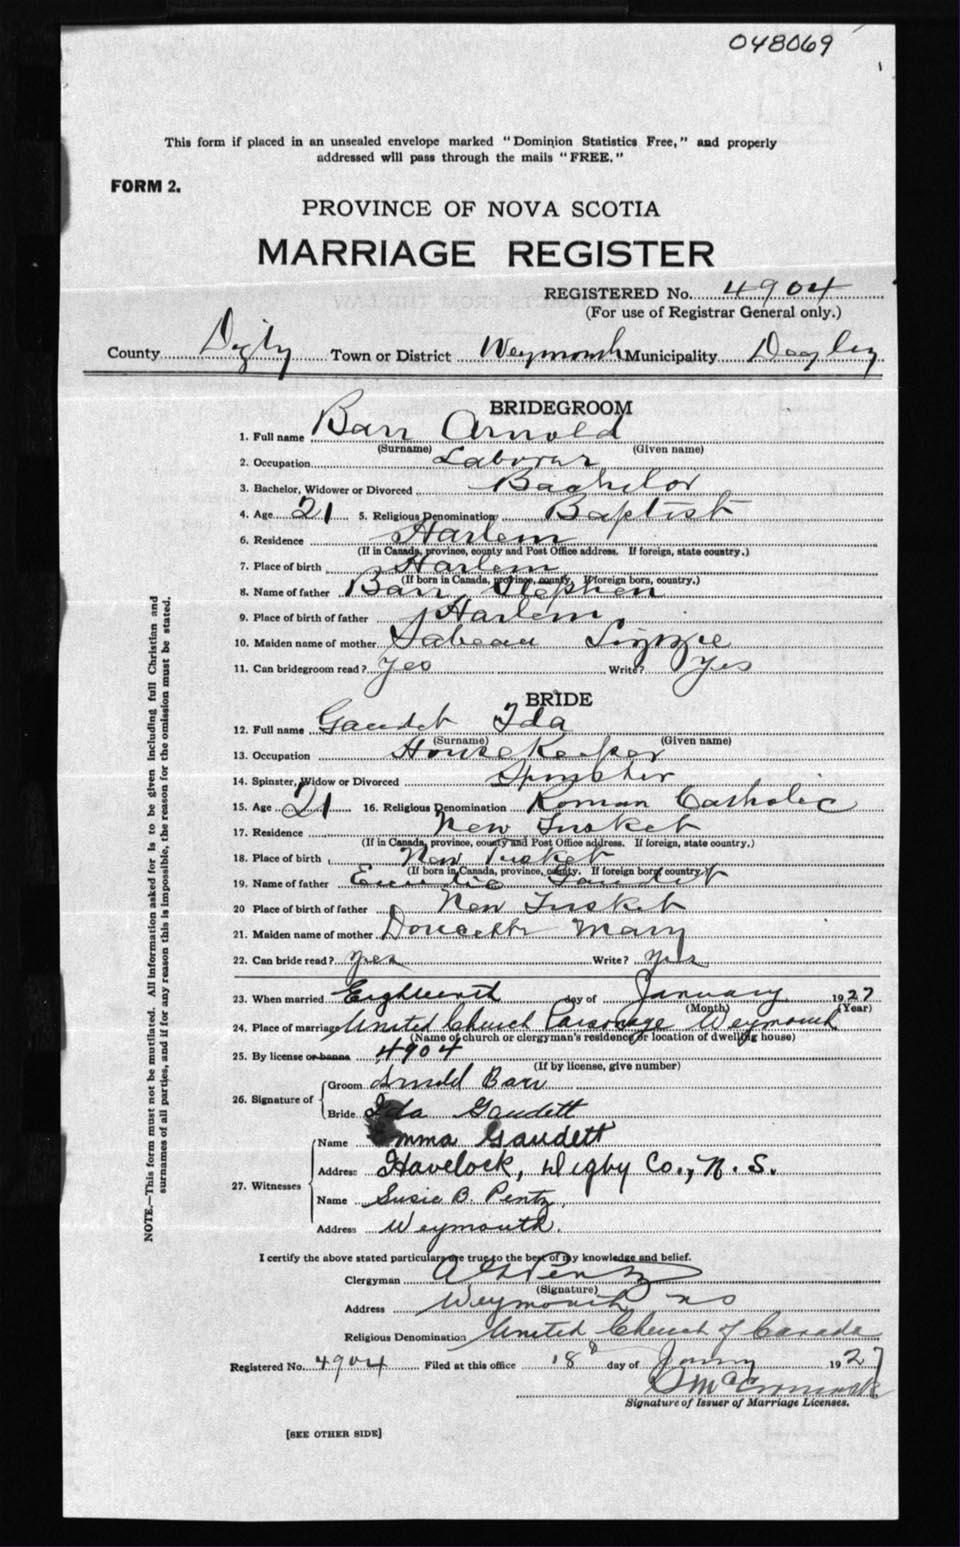 048069
This form if placed in an unsealed envelope marked "Dominion Statistics Free," and properly
addressed will pass through the mails "FREE."
FORM 2.
PROVINCE OF NOVA SCOTIA
MARRIAGE REGISTER
REGISTERED No. 4904
(For use of Registrar General only.)
County Digby Town or District Weymouth Municipality Digby
BRIDEGROOM
1. Full name Barr Arnold
(Surname) (Given name)
2. Occupation Laborer
3. Bachelor, Widower or Divorced Bachelor
4. Age 21 5. Religious Denomination Baptist
6. Residence Harlem
(If in Canada, province, county and Post Office address. If foreign, state country.)
7. Place of birth Harlem
(If born in Canada, province, county. If foreign born, country.)
8. Name of father Barr Stephen
9. Place of birth of father Harlem
10. Maiden name of mother Sabean Lizzie
11. Can bridegroom read? yes Write? yes
BRIDE
12. Full name Gaudet Ida
(Surname) (Given name)
13. Occupation House Keeper
14. Spinster, Widow or Divorced Spinster
15. Age 21 16. Religious Denomination Roman Catholic
17. Residence New Tusket
(If in Canada, province, county and Post Office address. If foreign, state country.)
18. Place of birth New Tusket
(If born in Canada, province, county. If foreign born, country.)
19. Name of father Gaudet
20 Place of birth of father New Tusket
21. Maiden name of mother Doucette Mary
22. Can bride read? yes Write? yes
23. When married Eighteenth day of January 1927
(Month) (Year)
24. Place of marriage United Church Parsonage Weymouth
(Name of church or clergyman's residence or location of dwelling house)
25. By license or banns 4904
(If by license, give number)
26. Signature of
Groom Arnold Barr
Bride Ida Gaudett
27. Witnesses
Name Emma Gaudett
Address Havelock, Digby Co., N. S.
Name Susie B. Pentz,
Address Weymouth.
I certify the above stated particulars are true to the best of my knowledge and belief.
Clergyman Pentz
(Signature)
Address Weymouth NS
Religious Denomination United Church of Canada
Registered No. 4904 Filed at this office 18 day of 1927
McCormack
Signature of Issuer of Marriage Licenses.
[SEE OTHER SIDE]
NOTE.—This form must not be mutilated. All information asked for is to be given including full Christian and
surnames of all parties, and if for any reason this is impossible, the reason for the omission must be stated.